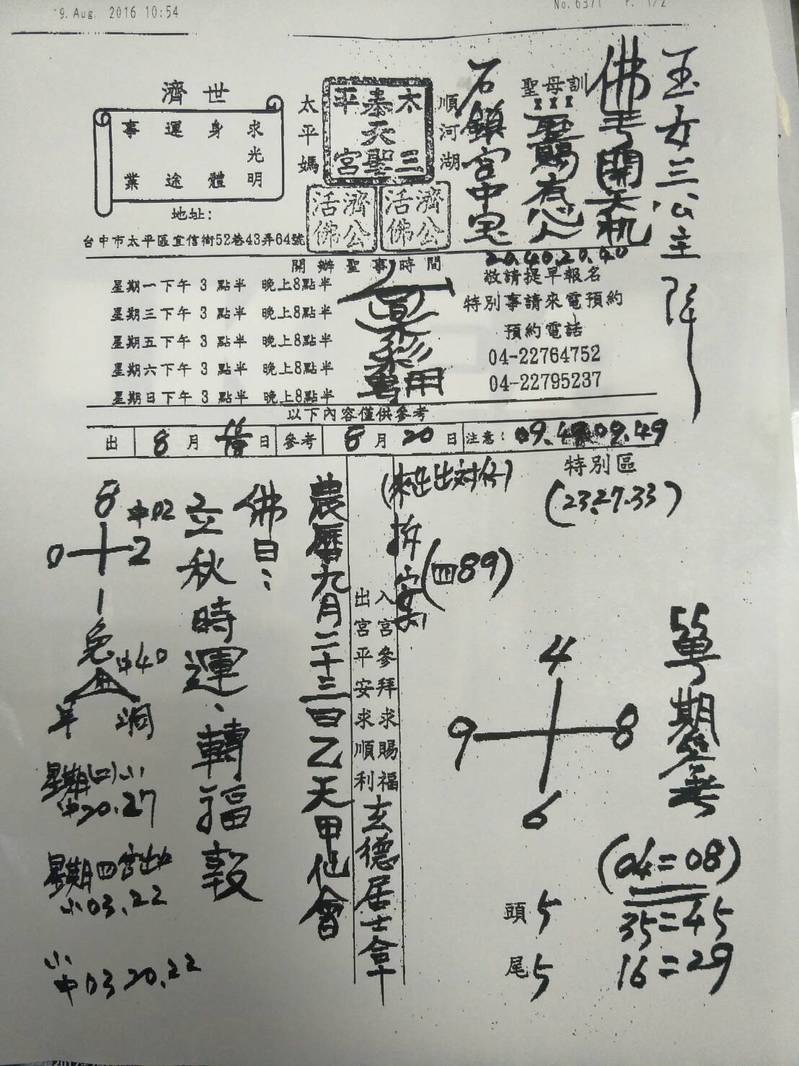 9. Aug. 2016 10:54
No. 6371 P. 1/2
玉女三公主降
佛手開天机
聖母訓
XXX
惡賜有心人
石鎮宮中寶
20.40.20.40
順河湖
太三
奉天聖
平宮
太平媽
濟公活佛
濟公活佛
濟世
求光明
身體
運途
事業
地址:
台中市太平區宜信街52巷43弄64號
開辦聖事時間
星期一下午 3 點半 晚上8點半
星期三下午 3 點半 晚上8點半
星期五下午 3 點半 晚上8點半
星期六下午 3 點半 晚上8點半
星期日下午 3 點半 晚上8點半
敬請提早報名
特別事請來電預約
預約電話
04-22764752
04-22795237
專用
以下內容僅供參考
出 8 月 日 參考 8 月 20 日 注意: 09.49.09.49
特別區
(23.27.33)
單期參考
4
9 8
6
(04=08)
35=45
16=29
頭5
尾5
(四89)
入宮參拜求賜福
出宮平安求順利
玄德居士拿
農曆九月二十三四乙天甲仙會
佛曰:
立秋時運、轉福報
8 中02
0 2
1
兔 中40
羊 洞
星期(四)小
中20.27
星期四宮出
小03.22
小
中03 20.22